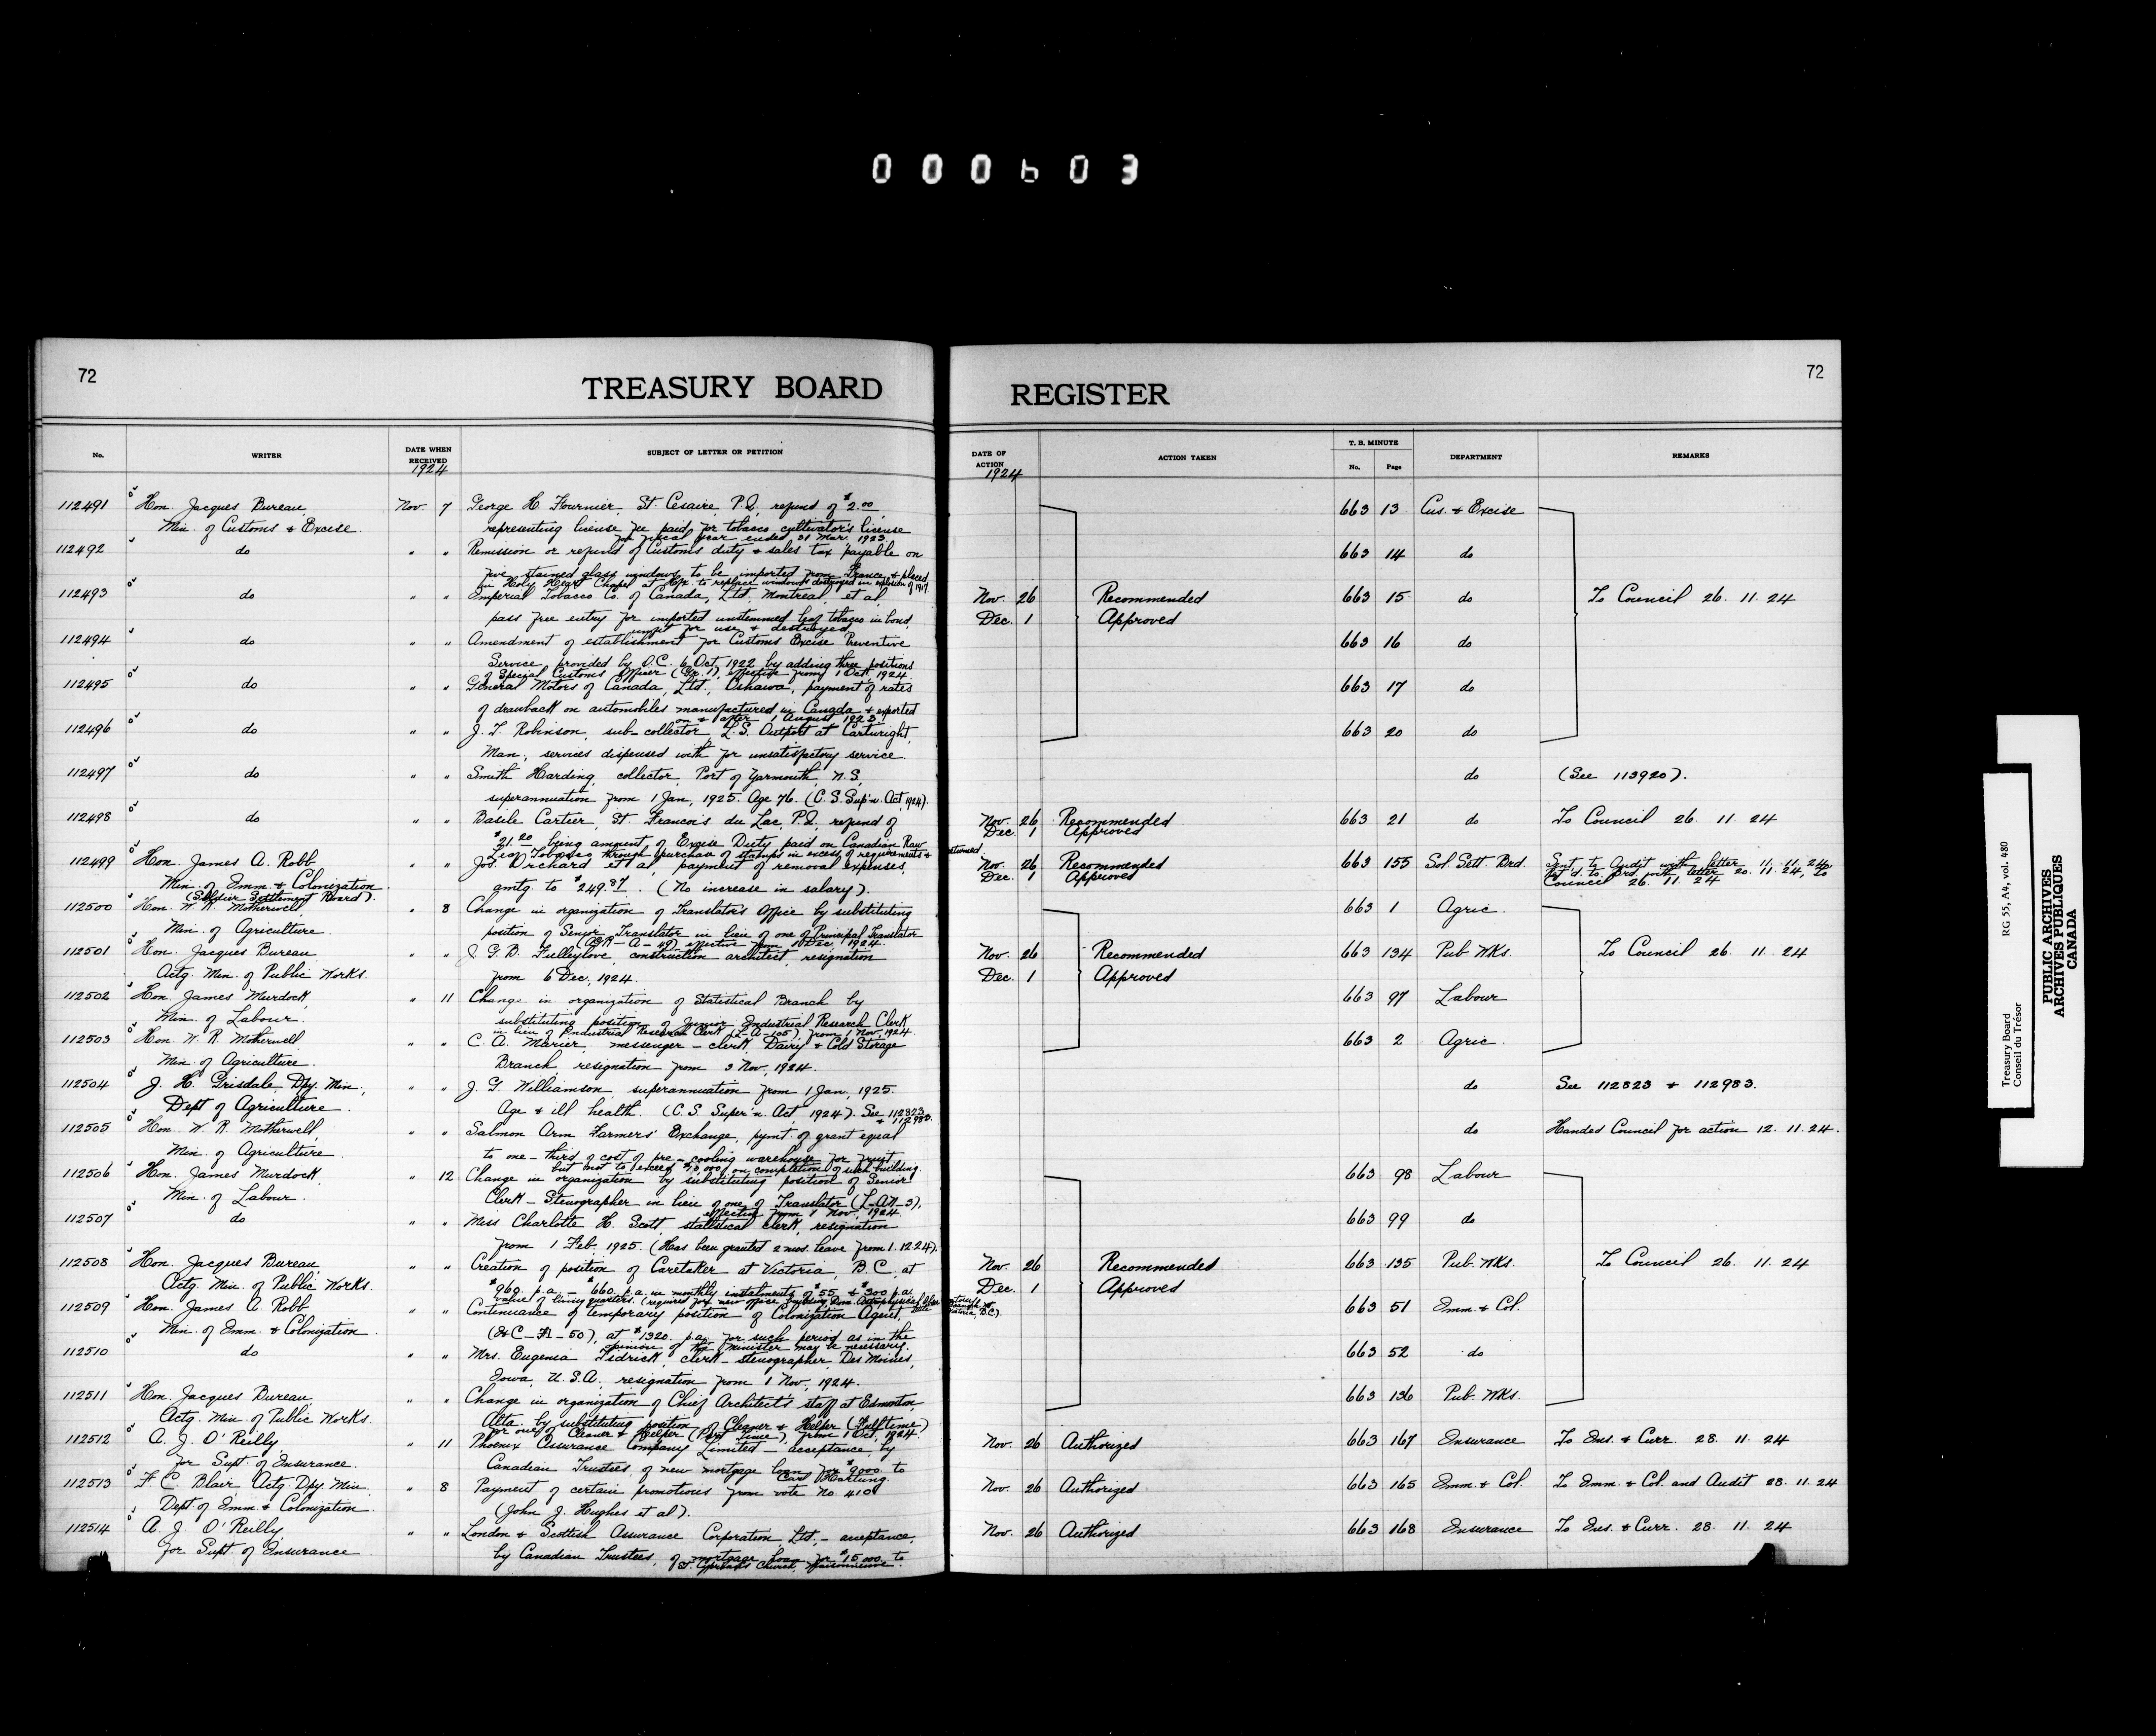 000603
72
TREASURY BOARD
No.
WRITER
DATE WHEN RECEIVED
1924
SUBJECT OF LETTER OR PETITION
112491 Hon. Jacques Bureau, Nov. 7 George H. Fournier, St. Cesaire, P.Q., refund of $2.00,
Min. of Customs & Excise. representing license fee paid for tobacco cultivator's license
for fiscal year ended 31 Mar. 1923.
112492 do " " Remission or refund of Customs duty & sales tax payable on
five stained glass windows to be imported from France & placed
in Holy Heart Chapel at Hfx. to replace windows destroyed in explosion of 1917.
112493 do " " Imperial Tobacco Co. of Canada, Ltd., Montreal, et al,
pass free entry for imported unstemmed leaf tobacco in bond,
unfit for use & destroyed.
112494 do " " Amendment of establishment for Customs Excise Preventive
Service, provided by O.C. 6 Oct. 1922 by adding three positions
of Special Customs Officer (Gr. 1), effective from 1 Oct. 1924.
112495 do " " General Motors of Canada, Ltd., Oshawa, payment of rates
of drawback on automobiles manufactured in Canada & exported
on & after 1 August 1923.
112496 do " " J. T. Robinson, sub-collector, L.S. Outport at Cartwright,
Man., services dispensed with for unsatisfactory service.
112497 do " " Smith Harding, collector, Port of Yarmouth, N.S.,
superannuation from 1 Jan, 1925. Age 76. (C.S. Sup'n. Act, 1924).
112498 do " " Basile Cartier, St. Francois du Lac, P.Q., refund of
$21.20 being amount of Excise Duty paid on Canadian Raw
Leaf Tobacco through purchase of stamps in excess of requirements &
112499 Hon. James A. Robb, " " Jos. Orchard et al, payment of removal expenses,
Min. of Imm. & Colonization amtg. to $249.87. (No increase in salary).
(Soldier Settlement Board).
112500 Hon. W. R. Motherwell, " 8 Change in organization of Translator's Office by substituting
Min. of Agriculture. position of Senior Translator in lieu of one of Principal Translator
(AGR-A-49) effective from 1 Dec, 1924.
112501 Hon. Jacques Bureau, " " J. G. B. Fulleylove, construction architect, resignation
Actg. Min. of Public Works. from 6 Dec, 1924.
112502 Hon. James Murdock, " 11 Change in organization of Statistical Branch by
Min. of Labour. substituting position of Junior Industrial Research Clerk
in lieu of Industrial Research Clerk (L-A-105), from 1 Nov. 1924.
112503 Hon W. R. Motherwell, " " C. A. Marier, messenger-clerk, Dairy & Cold Storage
Min. of Agriculture. Branch, resignation from 3 Nov, 1924.
112504 J. H. Grisdale Dpy. Min., " " J. G. Williamson, superannuation from 1 Jan, 1925.
Dept of Agriculture. Age & ill health. (C.S. Super'n. Act, 1924). See 112823
& 112983.
112505 Hon. W. R. Motherwell, " " Salmon Arm Farmers' Exchange, pymt. of grant equal
Min. of Agriculture. to one-third of cost of pre-cooling warehouse for fruit
but not to exceed on completion of such building.
112506 Hon. James Murdock, " 12 Change in organization by substituting position of Senior
Min. of Labour. Clerk-Stenographer in lieu of one of Translator
effective from 1 Nov, 1924.
112507 do " " Miss Charlotte H. Scott, statistical clerk, resignation
from 1 Feb. 1925. (Has been granted 2 mos. leave from 1.12.24).
112508 Hon. Jacques Bureau, " " Creation of position of Caretaker at Victoria, B.C., at
Actg. Min. of Public Works. $960. p.a., - $660. p.a. in monthly instalments of $55 & $300 p.a.
value of living quarters. (required for new office building Dom. Astrophysical
112509 Hon. James A. Robb, " " Continuance of temporary position of Colonization Agent,
Min. of Imm. & Colonization. at $1320. p.a. for such period as in the
opinion of the Minister may be necessary.
112510 do " " Mrs. Eugenia Fidrick, clerk-stenographer, Des Moines,
Iowa, U.S.A., resignation from 1 Nov, 1924.
112511 Hon. Jacques Bureau, " " Change in organization of Chief Architect's staff at Edmonton,
Actg. Min. of Public Works. Alta. by substituting position of Cleaner & Helper (Full time)
for one of Cleaner & Helper (Part time), from 1 Oct, 1924.
112512 A. J. O'Reilly, " 11 Phoenix Assurance Company Limited - acceptance by
for Supt. of Insurance. Canadian Trustees of new mortgage loan for $9000 to
Carl Hartung.
112513 F. C. Blair, Actg. Dpy. Min. " 8 Payment of certain promotions from vote no. 410
Dept of Imm. & Colonization. (John J. Hughes et al).
112514 A. J. O'Reilly, " " London & Scottish Assurance Corporation, Ltd. - acceptance,
for Supt. of Insurance by Canadian Trustees, of mortgage loan for $15,000 to
Church, Maisonneuve.
72
REGISTER
DATE OF ACTION
1924
ACTION TAKEN
T. B. MINUTE
No.
Page
DEPARTMENT
REMARKS
663 13 Cus. & Excise
663 14 do
Nov. 26 Recommended 663 15 do To Council 26. 11. 24
Dec. 1 Approved
663 16 do
663 17 do
663 20 do
do (See 113920).
Nov. 26 Recommended 663 21 do To Council 26. 11. 24
Dec. 1 Approved
Nov. 26 Recommended 663 155 Sol. Sett. Brd. Snt. to Audit with letter 11.11.24,
Dec. 1 Approved Ret'd. to Brd. with letter 20.11.24, To
Council 26. 11. 24
663 1 Agric.
Nov. 26 Recommended 663 134 Pub. Wks. To Council 26. 11. 24
Dec. 1 Approved
663 97 Labour
663 2 Agric.
do See 112823 & 112983.
do Handed Council for action 12. 11. 24.
663 98 Labour
663 99 do
Nov. 26 Recommended 663 135 Pub. Wks. To Council 26. 11. 24
Dec. 1 Approved
663 51 Imm. & Col.
663 52 do
663 136 Pub. Wks.
Nov. 26 Authorized 663 167 Insurance To Ins. & Curr. 28. 11. 24
Nov. 26 Authorized 663 165 Imm. & Col. To Imm. & Col. and Audit 28. 11. 24
Nov. 26 Authorized 663 168 Insurance To Ins. & Curr. 28. 11. 24
Treasury Board RG 55, A4, vol. 480
Conseil du Trésor
PUBLIC ARCHIVES
ARCHIVES PUBLIQUES
CANADA